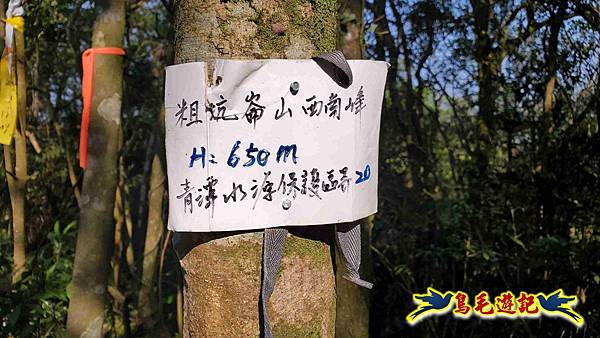 粗坑崙山西南峰
H=650M
青潭水源保護區界20
鳥毛遊記